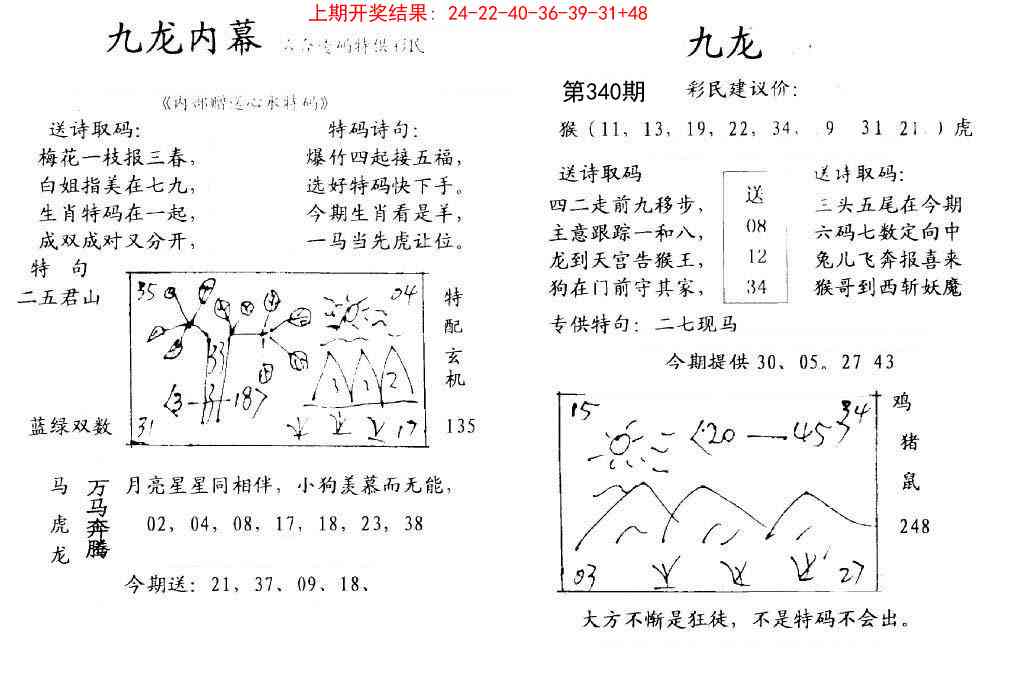 上期开奖结果：24-22-40-36-39-31+48
九龙内幕
《内部赠送心水特码》
送诗取码：
梅花一枝报三春，
白姐指美在七九，
生肖特码在一起，
成双成对又分开，
特码诗句：
爆竹四起接五福，
选好特码快下手。
今期生肖看是羊，
一马当先虎让位。
特 句
二五君山
蓝绿双数
35
04
33
1
1
2
31
17
特
配
玄
机
135
马
虎
龙
万马奔腾
月亮星星同相伴，小狗羡慕而无能，
02，04，08，17，18，23，38
今期送：21，37、09、18、
九龙
第340期
彩民建议价：
猴（11，13，19，22，34、 9 31 21.）虎
送诗取码
四二走前九移步，
主意跟踪一和八，
龙到天宫告猴王，
狗在门前守其家，
送
08
12
34
送诗取码：
三头五尾在今期
六码七数定向中
兔儿飞奔报喜来
猴哥到西斩妖魔
专供特句：二七现马
今期提供 30、05。27 43
15
34
〈20—45〉
03
27
鸡
猪
鼠
248
大方不惭是狂徒，不是特码不会出。